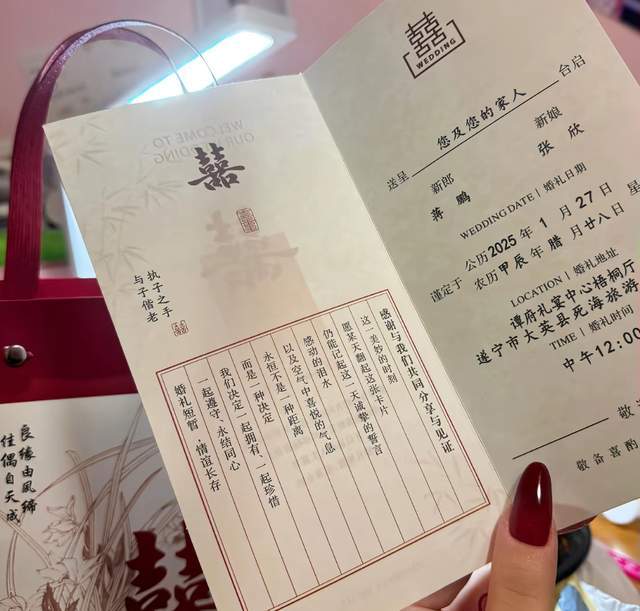 囍
执子之手
与子偕老
感谢与我们共同分享与见证
这一美妙的时刻
愿某天翻起这张卡片
仍能记起这一天诚挚的誓言
感动的泪水
以及空气中喜悦的气息
永恒不是一种距离
而是一种决定
我们决定一起拥有、一起珍惜
一起遵守、永结同心
婚礼短暂 情谊长存
囍
WEDDING
送呈 您及您的家人 台启
新郎 新娘
蒋鹏 张欣
WEDDING DATE | 婚礼日期
谨定于
公历2025年1月27日 星
农历甲辰年腊月廿八日
LOCATION | 婚礼地址
谭府礼宴中心梧桐厅
遂宁市大英县死海旅游
TIME | 婚礼时间
中午12:00
敬
敬备喜酌
良缘由夙缔
佳偶自天成
囍